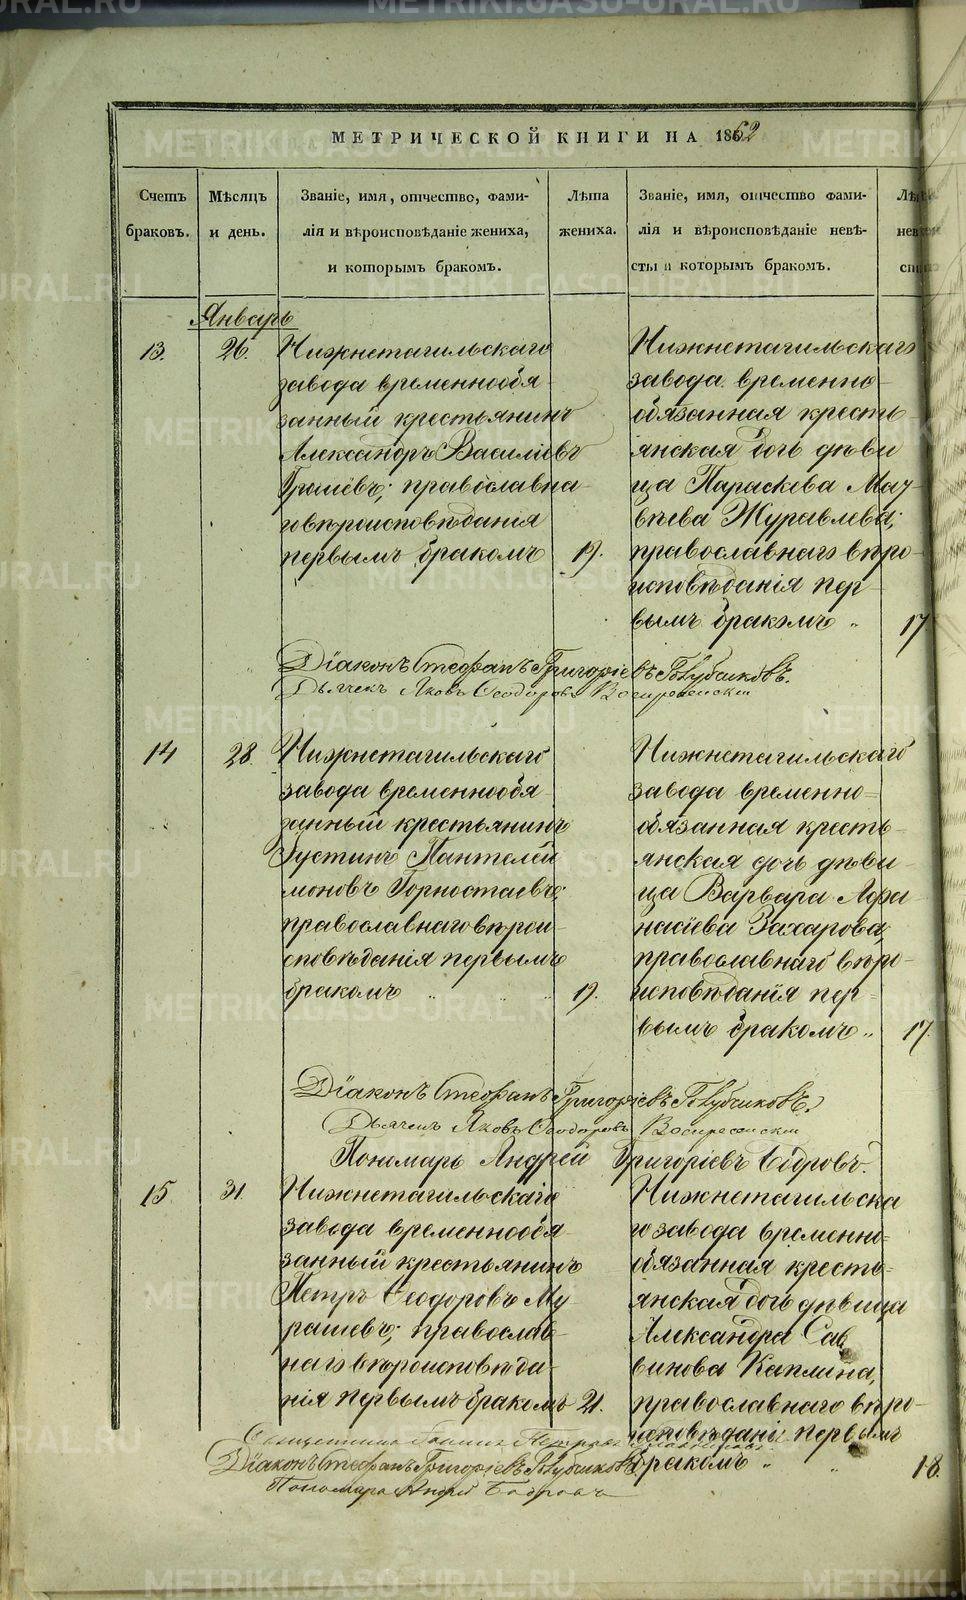 МЕТРИЧЕСКОЙ КНИГИ НА 1862
Счетъ браковъ.
Мѣсяцъ и день.
Званіе, имя, отчество, фами-
лія и вѣроисповѣданіе жениха,
и которымъ бракомъ.
Лѣта жениха.
Званіе, имя, отчество фами-
лія и вѣроисповѣданіе невѣ-
сты и которымъ бракомъ.
Январь
13.
26.
Нижнетагильскаго
завода временнообя-
занный крестьянинъ
Александръ Василіевъ
православна
го вѣроисповѣданія
первымъ бракомъ
19.
Нижнетагильскаго
завода временно-
обязанная кресть-
янская дочь дѣви
ца Параскева Мат-
вѣева Журавлева;
православнаго вѣро-
исповѣданія пер-
вымъ бракомъ „
17
Діаконъ Стефанъ Григоріевъ Голубчиковъ.
Дьячекъ Яковъ Ѳеодоровъ Воскресенскій
14
28.
Нижнетагильскаго
завода временнообя-
занный крестьянинъ
Густинъ Пантелей
моновъ Горностаевъ;
православнаго вѣрои-
сповѣданія первымъ
бракомъ „ „ „
19.
Нижнетагильскаго
завода временно-
обязанная кресть-
янская дочь дѣви-
ца Варвара Афа-
насіева Захарова;
православнаго вѣро-
исповѣданія пер-
вымъ бракомъ „
17.
Діаконъ Стефанъ Григоріевъ Голубчиковъ.
Дьячекъ Яковъ Ѳеодоровъ Воскресенскій
Пономарь Андрей Григоріевъ Бобровъ.
15
31.
Нижнетагильскаго
завода временнообя-
занный крестьянинъ
Петръ Ѳеодоровъ Му-
рашевъ; православ-
наго вѣроисповѣда-
нія первымъ бракомъ
21.
Нижнетагильска
го завода временно-
обязанная кресть-
янская дочь дѣвица
Александра Сав
винова Каплина;
православнаго вѣро-
исповѣданія первымъ
бракомъ „ „
18.
Діаконъ Стефанъ Григоріевъ Голубчиковъ
Пономарь Андрей Бобровъ
METRIKI.GASO-URAL.RU